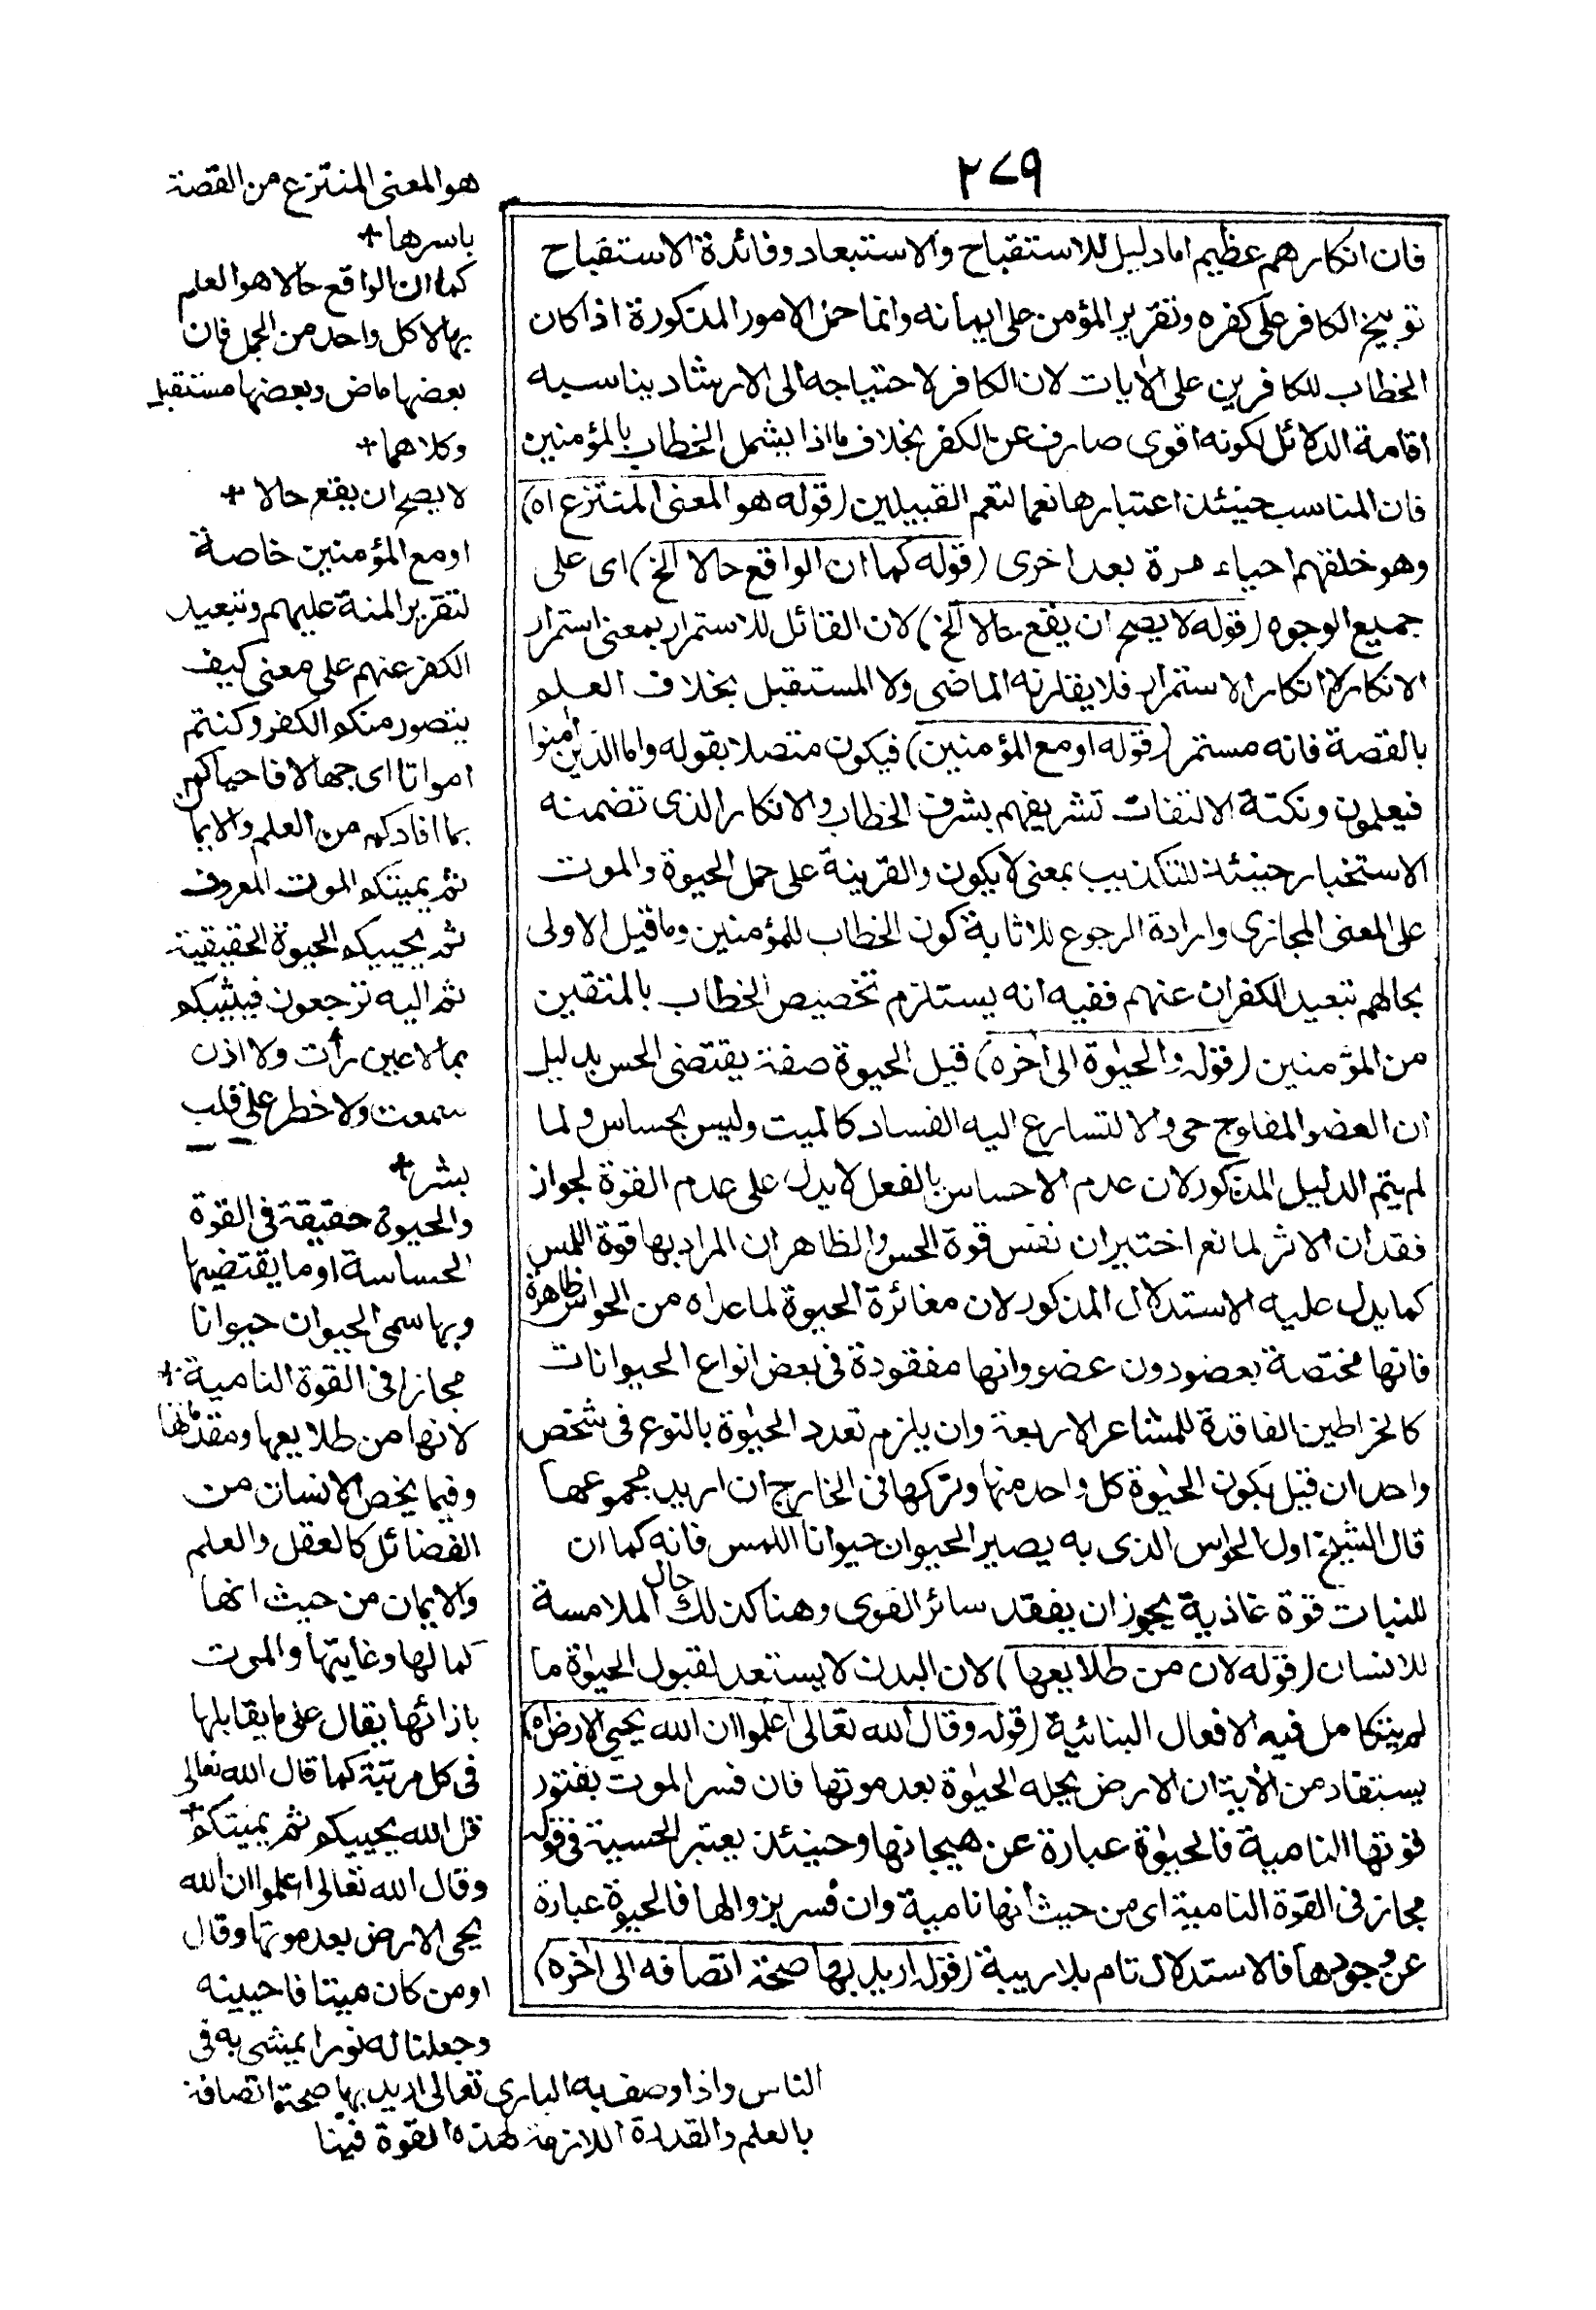 ٢٧٩
فان انكارهم عظيم اما دليل للاستقباح والاستبعاد وفائدة الاستقباح
توبيخ الكافر على كفره وتقرير المؤمن على ايمانه وانما حمل الامور المذكورة اذا كان
الخطاب للكافرين على الأيات لان الكافر لاحتياجه الى الارشاد يناسبه
اقامة الدلائل لكونه اقوى صارف عن الكفر بخلاف ما اذا يشمل الخطاب بالمؤمنين
فان المناسب حينئذ اعتبارها نعما لتعم القبيلين (قوله هو المعنى المنتزع اه)
وهو خلقهم احياء مرة بعد اخرى (قوله كما ان الواقع حالا الخ) اى على
جميع الوجوه (قوله لا يصح ان يقع حالا الخ) لان القائل للاستمرار بمعنى استمرار
الانكار لا انكار الاستمرار فلا يقارنه الماضى ولا المستقبل بخلاف العلم
بالقصة فانه مستمر (قوله او مع المؤمنين) فيكون متصلا بقوله واما الذين أمنوا
فيعلمون ونكتة الالتفات تشريفهم بشرف الخطاب والانكار الذى تضمنه
الاستخبار حينئذ للتكذيب بمعنى لا يكون والقرينة على حمل الحيوة والموت
على المعنى المجازى وارادة الرجوع للاثابة كون الخطاب للمؤمنين وما قيل الاولى
بحالهم تبعيد الكفران عنهم ففيه انه يستلزم تخصيص الخطاب بالمتقين
من المؤمنين (قوله والحيوة الى أخره) قيل الحيوة صفة يقتضى الحس بدليل
ان العضو المفلوج حى والا لتسارع اليه الفساد كالميت وليس بحساس ولما
لم يتم الدليل المذكور لان عدم الاحساس بالفعل لا يدل على عدم القوة لجواز
فقدان الاثر لمانع اختير ان نفس قوة الحس والظاهر ان المراد بها قوة اللمس
كما يدل عليه الاستدلال المذكور لان مغائرة الحيوة لما عداه من الحواس ظاهرة
فانها مختصة بعضو دون عضو وانها مفقودة فى بعض انواع الحيوانات
كالخراطين الفاقدة للمشاعر الاربعة وان يلزم تعدد الحيوة بالنوع فى شخص
واحد ان قيل بكون الحيوة كل واحد منها وتركها فى الخارج ان اريد مجموعها
قال الشيخ اول الحواس الذى به يصير الحيوان حيوانا اللمس فانه كما ان
للنبات قوة غاذية يجوز ان يفقد سائر القوى وهنا كذلك حال الملامسة
للانسان (قوله لان من طلايعها) لان البدن لا يستعد لقبول الحيوة ما
لم يتكامل فيه الافعال النباتية (قوله وقال الله تعالى اعلموا ان الله يحيى الارض اه)
يستفاد من الأية ان الارض يحله الحيوة بعد موتها فان فسر الموت بفتور
قوتها النامية فالحيوة عبارة عن هيجانها وحينئذ يعتبر الحسية فى قوله
مجاز فى القوة النامية اى من حيث انها نامية وان فسر بزوالها فالحيوة عبارة
عن وجودها فالاستدلال تام بلا ريبة (قوله اريد بها صحة اتصافه الى أخره)
هو المعنى المنتزع من القصة
باسرها +
كما ان الواقع حالا هو العلم
بها لا كل واحد من الجمل فان
بعضها ماض وبعضها مستقبل
وكلاهما +
لا يصح ان يقع حالا +
او مع المؤمنين خاصة
لتقرير المنة عليهم وتبعيد
الكفر عنهم على معنى كيف
يتصور منكم الكفر وكنتم
امواتا اى جهالا فاحياكم
بما افادكم من العلم والايما
ثم يميتكم الموت المعروف
ثم يحييكم الحيوة الحقيقية
ثم اليه ترجعون فيثيبكم
بما لا عين رأت ولا اذن
سمعت ولا خطر على قلب
بشر +
والحيوة حقيقة فى القوة
الحساسة او ما يقتضيها
وبها سمى الحيوان حيوانا
مجازا فى القوة النامية +
لانها من طلايعها ومقدماتها
وفيما يخص الانسان من
الفضائل كالعقل والعلم
والايمان من حيث انها
كمالها وغايتها والموت
بازائها يقال على ما يقابلها
فى كل مرتبة كما قال الله تعالى
قل الله يحييكم ثم يميتكم +
وقال الله تعالى اعلموا ان الله
يحى الارض بعد موتها وقال
او من كان ميتا فاحيينه
وجعلنا له نورا يمشى به فى
الناس واذا وصف به البارى تعالى اريد بها صحة اتصافه
بالعلم والقدرة اللازمة لهذه القوة فينا